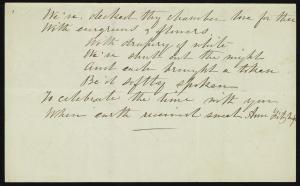 We've decked thy chamber love for thee
With evergreens & flowers,
With drapery of white
We've shut out the night
And each brought a token
Be it softly spoken
To celebrate the time with you
When earth received sweet Ann